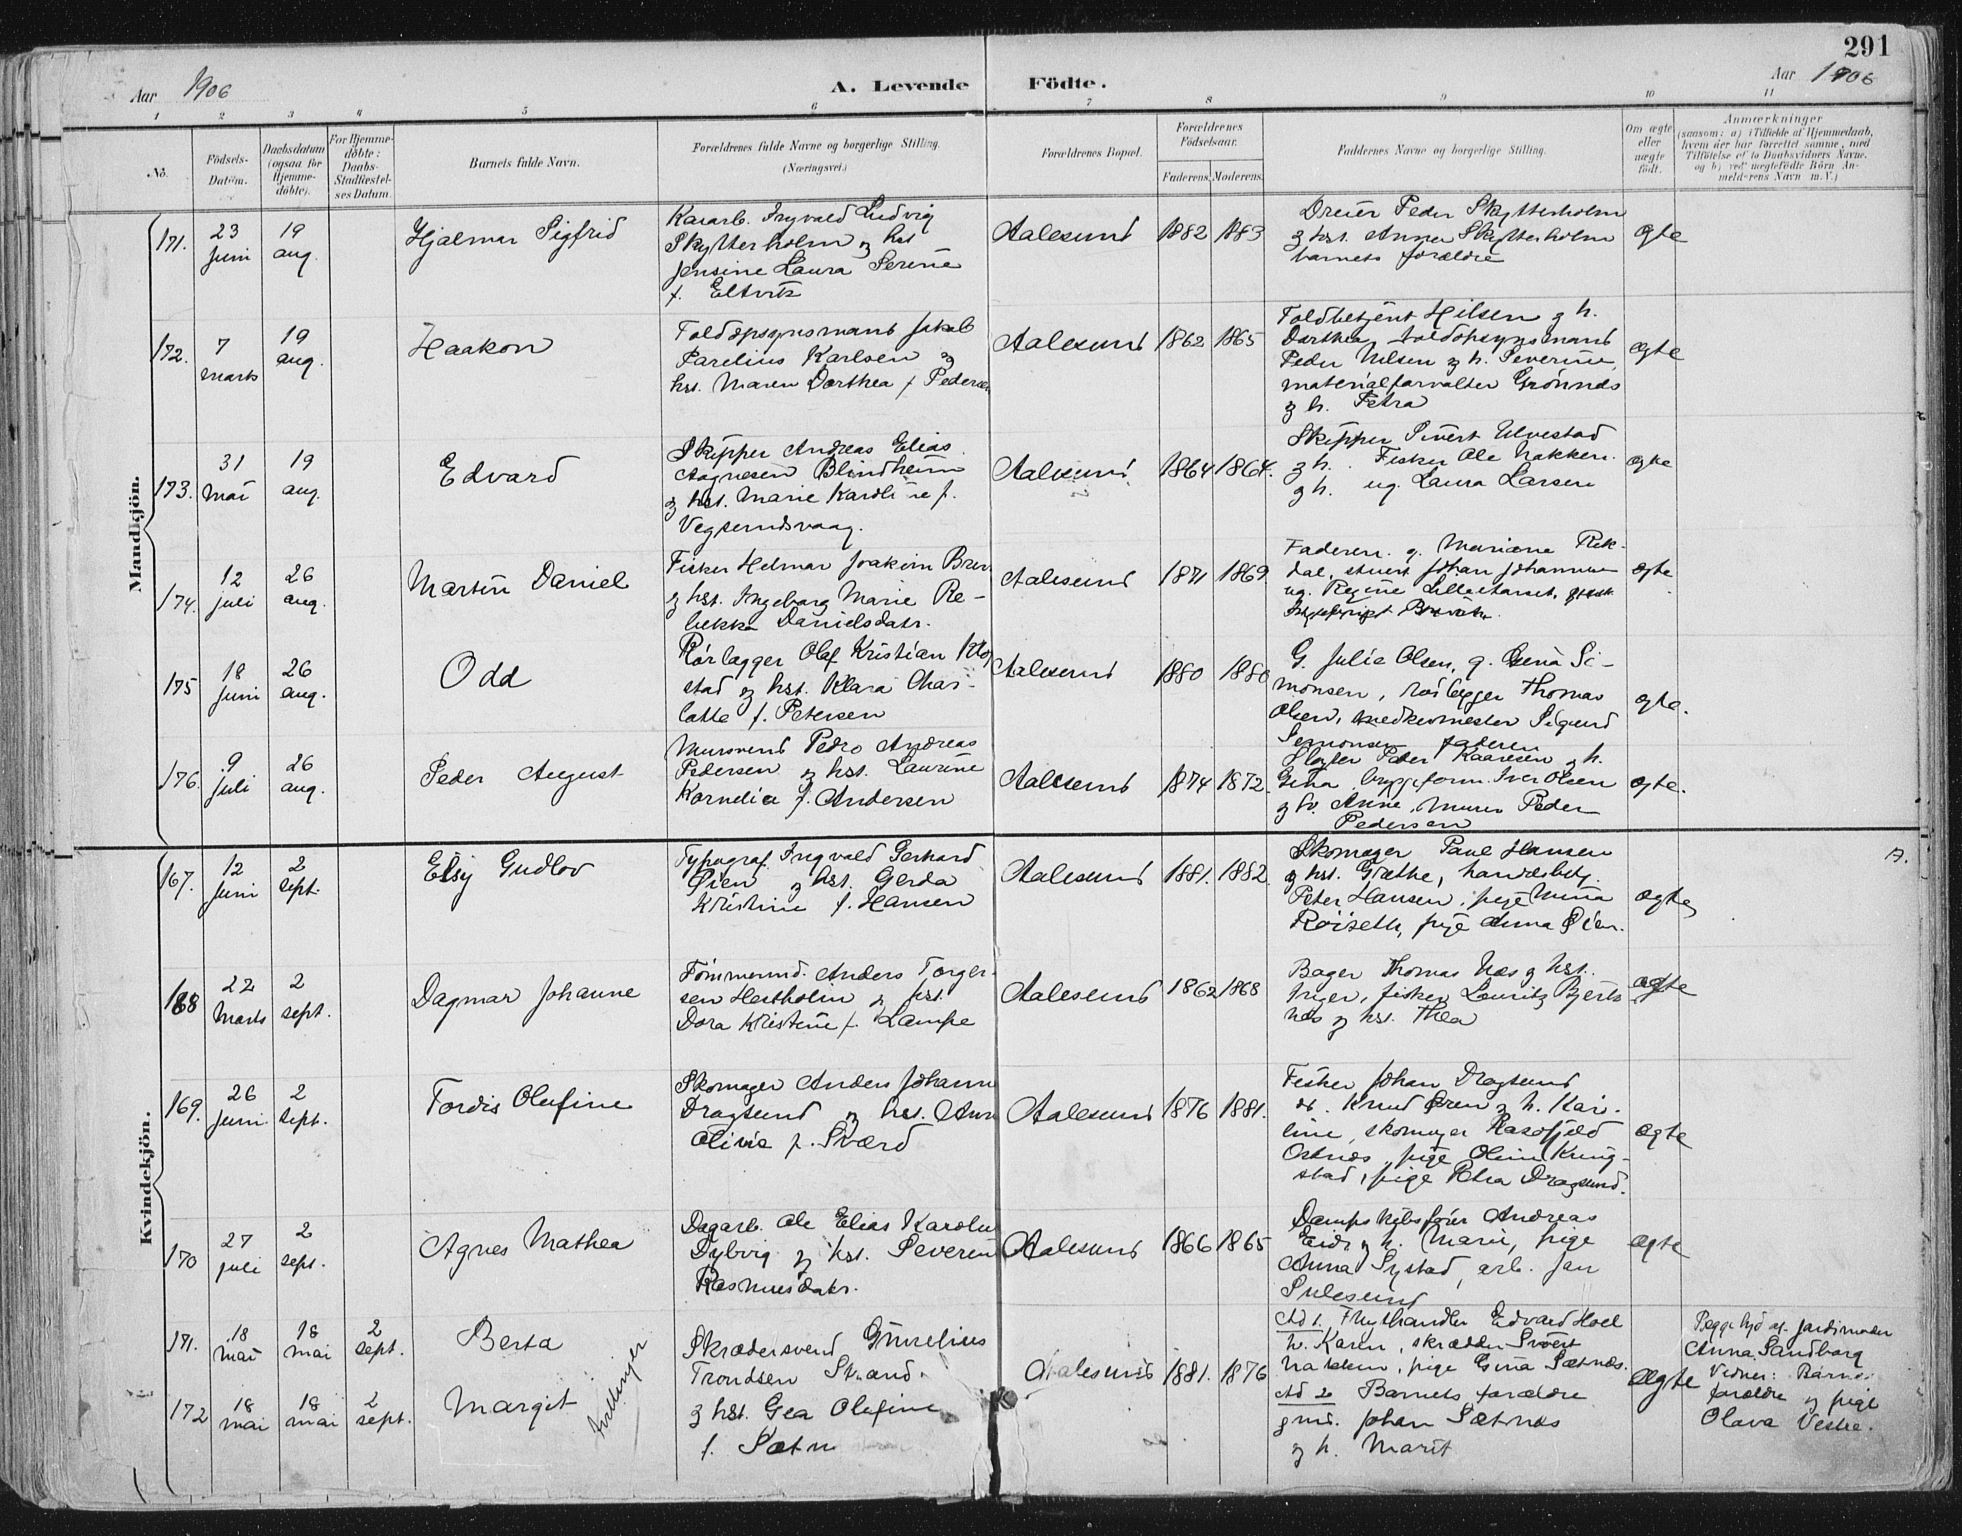 291
Aar 1906
A. Levende Födte.
Aar 1906
1 2 3 4 5 6 7 8 9 10 11
No.
Födsels-Datum.
Daabsdatum (ogsaa for Hjemme-döbte).
For Hjemme-döbte: Daabs-Stadfæstel-ses Datum.
Barnets fulde Navn.
Forældrenes fulde Navne og borgerlige Stilling. (Næringsvei.)
Forældrenes Bopæl.
Forældrenes Födselsaar.
Faderens. Moderens.
Faddernes Navne og borgerlige Stilling.
Om ægte eller uægte födt.
Anmærkninger
(saasom: a) i Tilfælde af Hjemmedaab, hvem der har forrettet samme, med Tilföielse af to Daabsvidners Navne. og b) ved uægtefödte Börn An-melderens Navn m. V.)
Mandkjön.
171. 23 juni 19 aug. Hjalmar Sigfrid
Ingvald Ludvig
Skytterholm og hst
Jensine Laura Serine
f. Eltvik
Aalesund 1882 1883
Dreier Peder Skytterholm
og hst. Anna Skytterholm
barnets forældre
ægte
172. 7 marts 19 aug. Haakon
Toldopsynsmand Jakob
Parelius Karlsen og
hst. Maren Dorthea f. Pedersen
Aalesund 1862 1865
Toldbetjent Nilsen og h.
Dorthea, toldopsynsmand
Peder Nilsen og h. Severine,
materialforvalter Grønnes
og h. Petra
ægte
173. 31 mai 19 aug. Edvard
Skipper Andreas Elias
Aagnesen Blindheim
og hst. Marie Karoline f.
Vegsundsvaag.
Aalesund 1864 1864.
Skipper Sivert Ulvestad
og h. Fisker Ole Nakken
og h. ug. Laura Larsen
ægte
174. 12 juli 26 aug. Martin Daniel
Fisker Helmar Joakim
og hst. Ingeborg Marie Re-
bekka Danielsdatr.
Aalesund 1871 1869
Faderen. g. Mariane Rek-
dal, stuert Johan Johannesen
ug. Regine
ægte
175 18 juni 26 aug. Odd
Rørlægger Olaf Kristian
stad og hst. Klara Char-
lotte f. Petersen
Aalesund 1880 1880
G. Julie Olsen, g. Gina Si-
monsen, rørlægger Thomas
Olsen, Sigurd
Simonsen faderen
ægte.
176. 9 juli 26 aug. Peder August
Mursvend Pedro Andreas
Pedersen og hst. Laurine
Kornelia f. Andersen
Aalesund 1874 1872.
Peter Kaaresen og h.
Gina, byggeform. Iver Olsen
og h. Anne, Murer Peder
Pedersen
ægte.
Kvindekjön.
167. 12 juni 2 sept. Elsy Gudlov
Typograf Ingvald Gerhard
Øien og hst. Gerda
Kristine f. Hansen
Aalesund 1881. 1882.
Skomager Paul Hansen
og hst. Grethe, handelsbetj.
Peter Hansen, pige Mina
Röiseth, pige Anna Øien.
ægte
A.
168 22 Marts 2 sept. Dagmar Johanne
Tømmermd. Anders Torger-
sen Hestholm og hst
Dora Kristine f. Lampe
Aalesund 1862 1868
Bager Thomas Næs og hst.
Inger, fisker Lauritz
næs og hst. Thea
ægte
169. 26 juni 2 sept. Tordis Olufine
Skomager Anders Johann
Dragsund og hst. Anna
Olivia f. Sværd
Aalesund 1876 1881.
Fisker Johan Dragsund
Knud Øren og h. Karo-
line, skomager
pige Oline Kring-
stad, pige Petra Dragsund.
ægte
170 27 juli 2 sept. Agnes Mathea
Dagarb. Ole Elias Karolus
Dybvig og hst. Severine
Rasmusdatr.
Aalesund 1866 1865
Dampskibsfører Andreas
Eide og h. Marie, pige
Anna Systad, arb. Jan
Sulesund
ægte
171. 18 mai 18 mai 2 sept. Berta
172 18 mai 18 mai 2 sept. Margit
tvillinger
Skrædersvend
Trondsen Strand
og hst. Gea Olufine
f. Sætn
Aalesund 1881. 1876
Ad 1. Edvard Hoel
h. Karen, skrædder Sivert
Nakken, pige Gina Sætnæs.
Ad 2 Barnets forældre
gmd. Johan Sætnæs
og h. Marit
Ægte
Begge hjd af jordmoder
Anna Sandborg
Vidner: Barnets
forældre og pige
Olava Vestre.